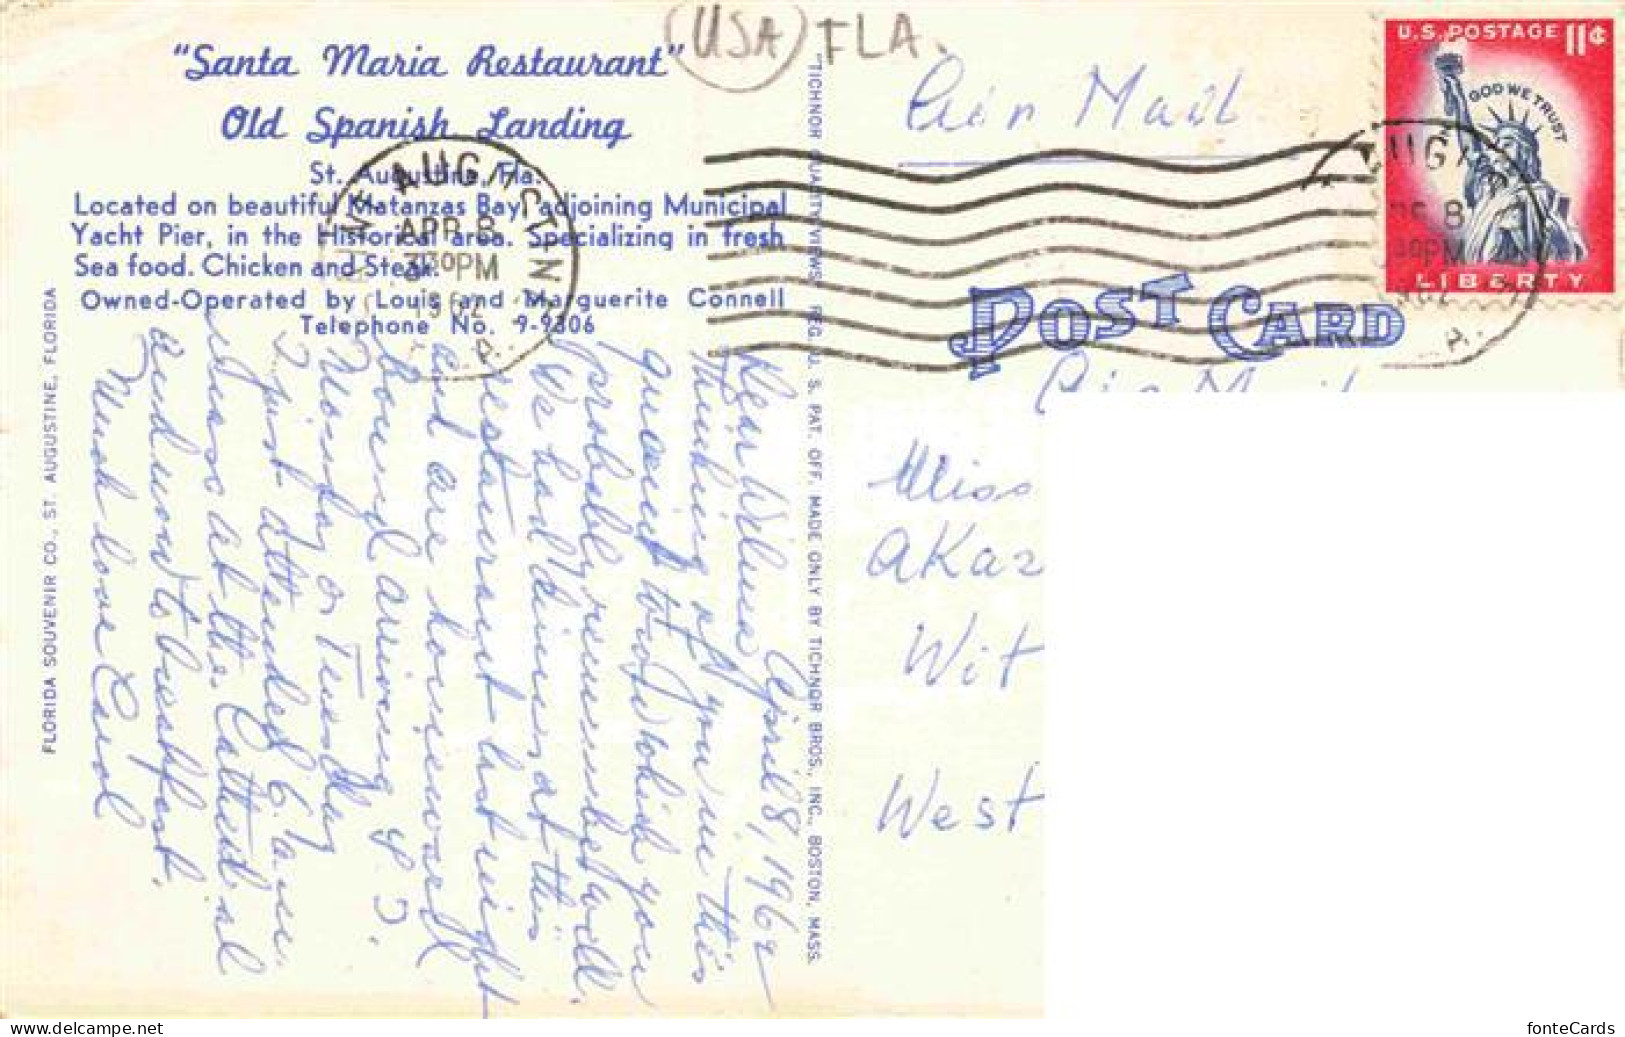 (USA) FLA.
"Santa Maria Restaurant"
Old Spanish Landing
St. Augustine, Fla.
Located on beautiful Matanzas Bay, adjoining Municipal
Yacht Pier, in the Historical area. Specializing in fresh
Sea food. Chicken and Steak.
Owned-Operated by Louis and Marguerite Connell
Telephone No. 9-9306
APR 8
PM
1962
FLORIDA SOUVENIR CO., ST. AUGUSTINE, FLORIDA
April 8, 1962
Dear Wilma
Thinking of you in this
quaint town which you
probably remember well.
We had dinner at this
restaurant last night
and are homeward
bound arriving
Monday or Tuesday
I just attended 6 a.m.
Mass at the Cathedral
and now to breakfast.
Much love Carol
"TICHNOR QUALITY VIEWS," REG. U. S. PAT. OFF. MADE ONLY BY TICHNOR BROS., INC., BOSTON, MASS.
Air Mail
U.S. POSTAGE 11¢
IN GOD WE TRUST
LIBERTY
POST CARD
Air Mail
Miss
AKaz
Wit
West
hosted on www.delcampe.net
fonteCards